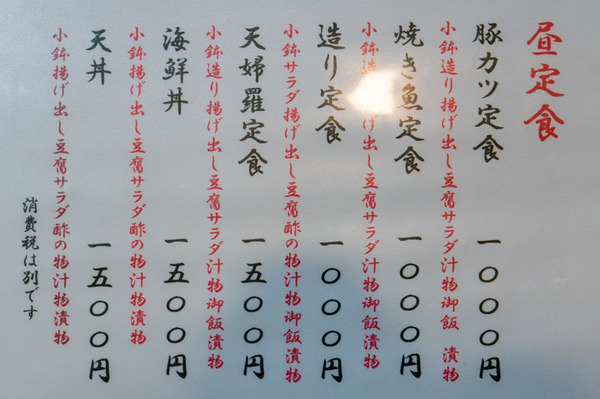 昼定食
豚カツ定食 一〇〇〇円
小鉢造り揚げ出し豆腐サラダ汁物御飯 漬物
焼き魚定食 一〇〇〇円
小鉢造り揚げ出し豆腐サラダ汁物御飯漬物
造り定食 一〇〇〇円
小鉢サラダ揚げ出し豆腐酢の物汁物御飯漬物
天婦羅定食 一五〇〇円
小鉢造り揚げ出し豆腐サラダ汁物御飯漬物
海鮮丼 一五〇〇円
小鉢揚げ出し豆腐サラダ酢の物汁物漬物
天丼 一五〇〇円
小鉢揚げ出し豆腐サラダ酢の物汁物漬物
消費税は別です